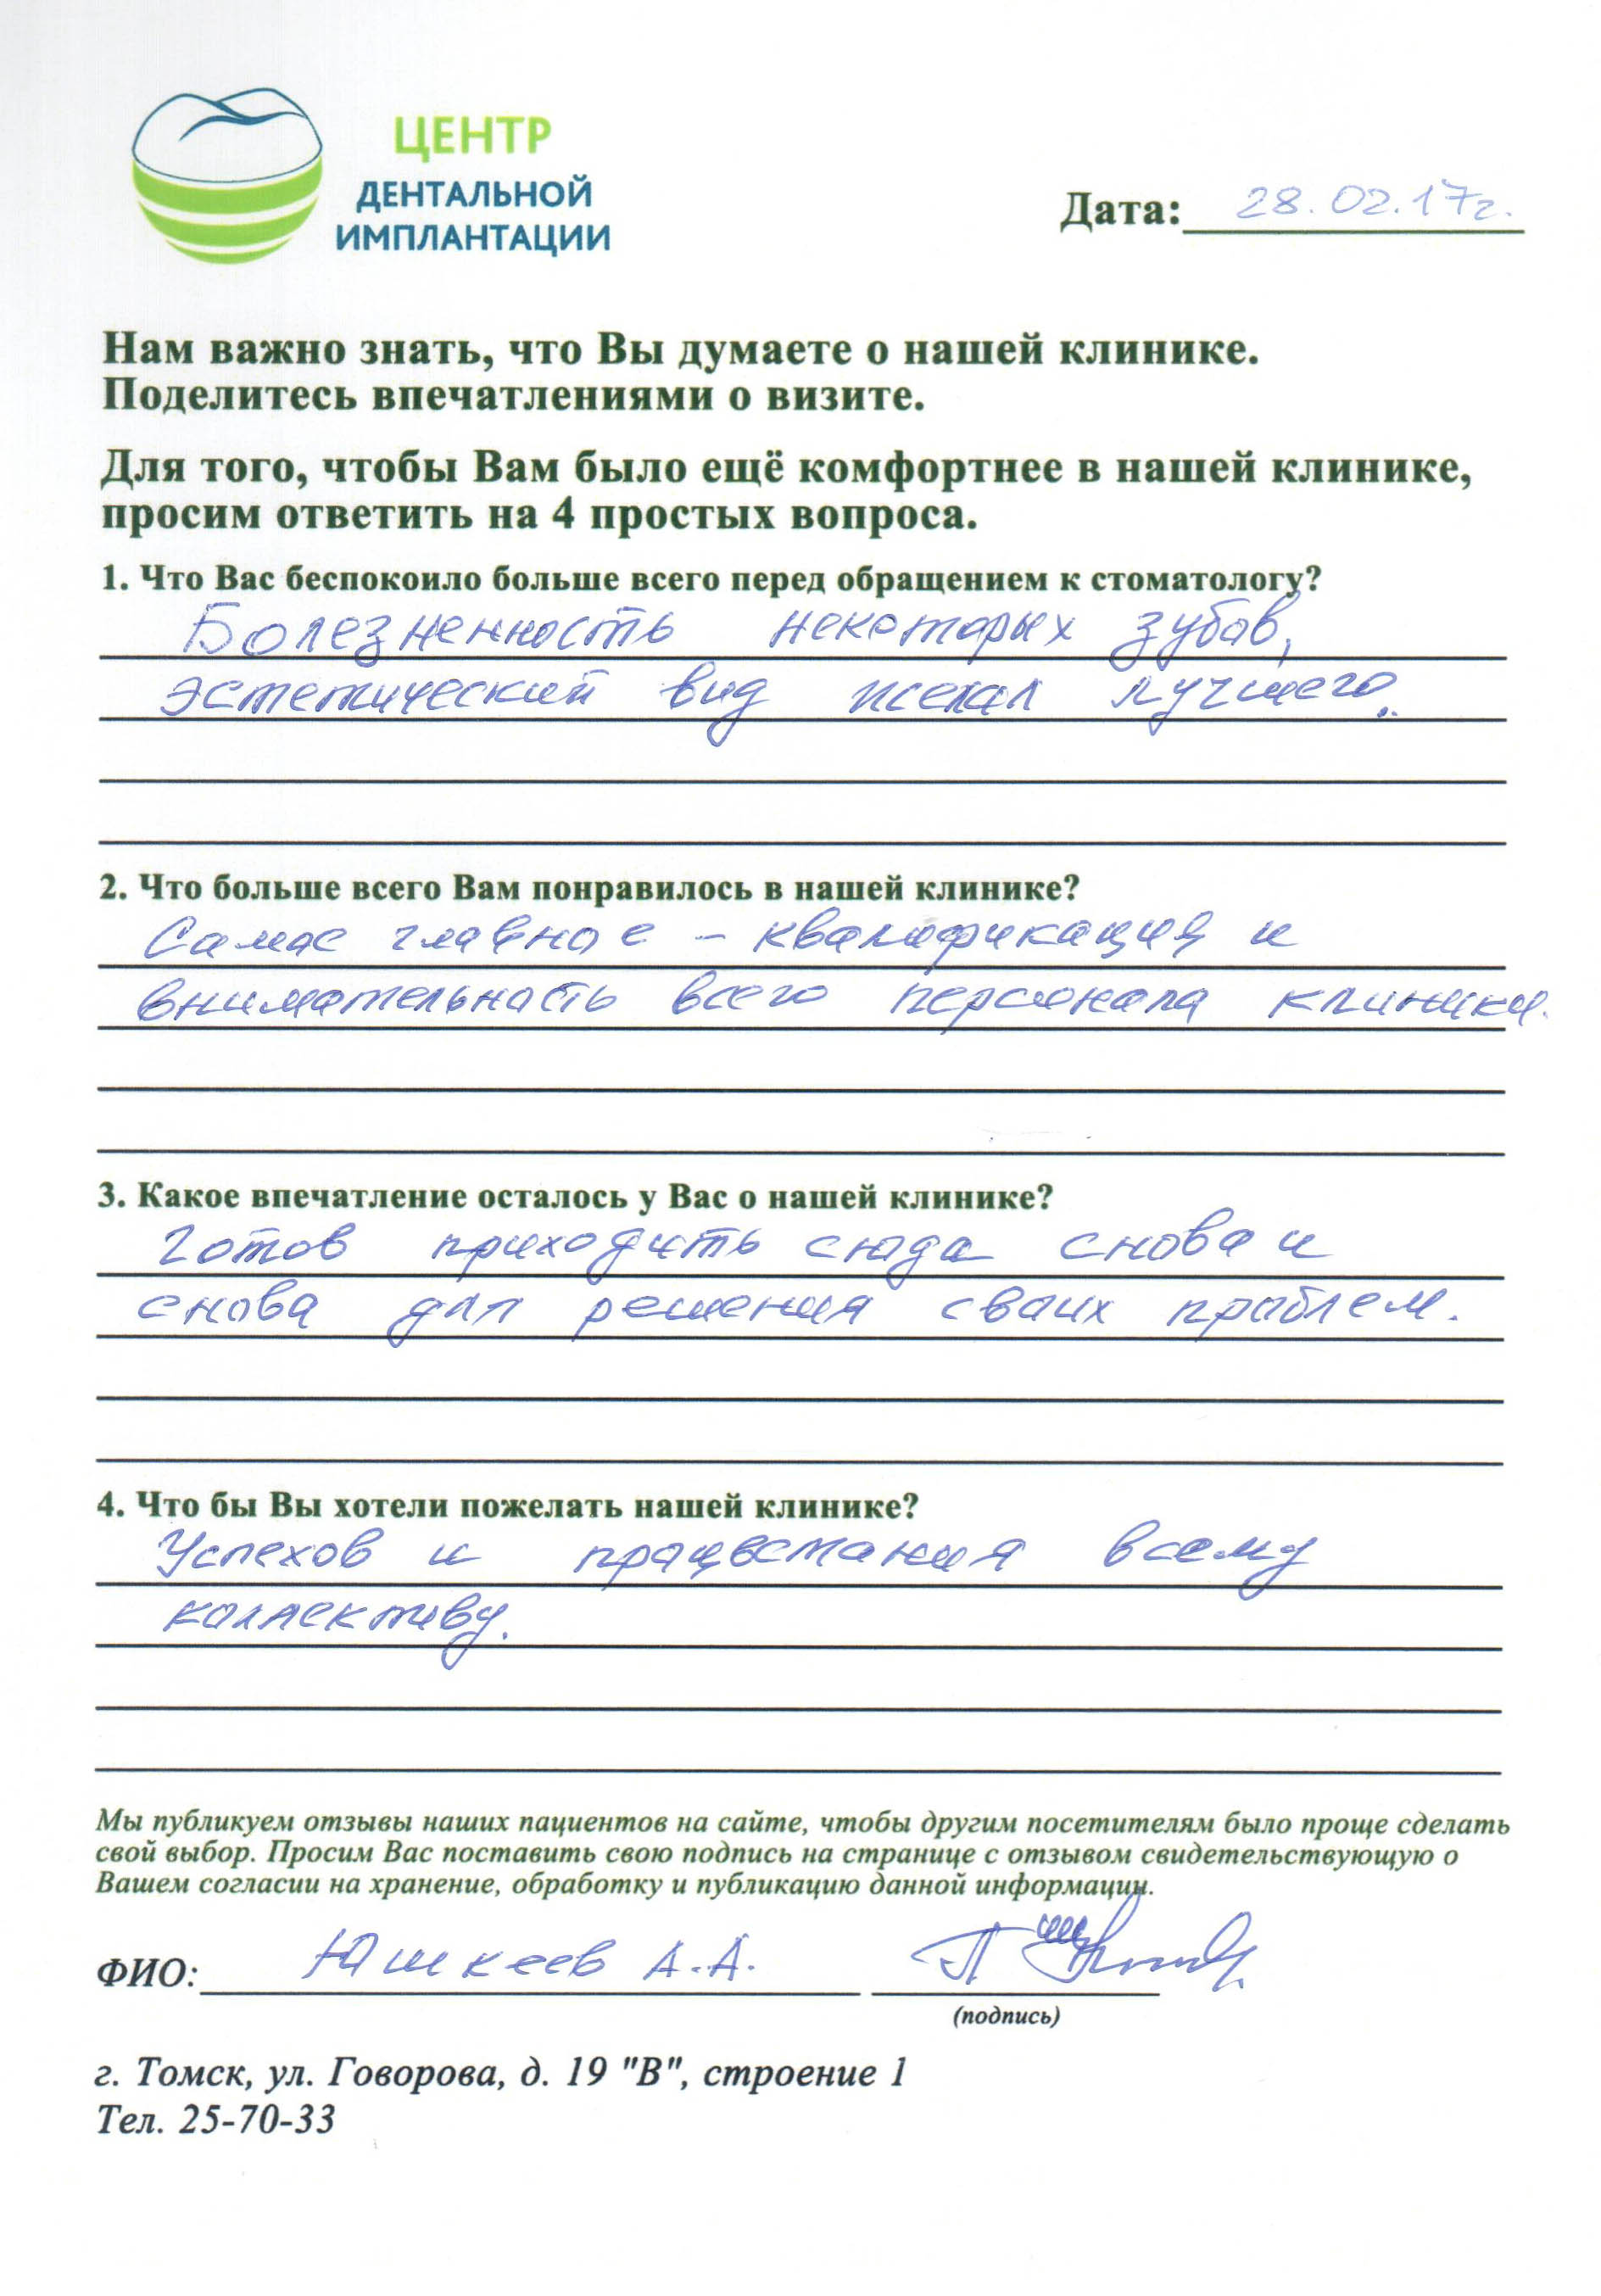 ЦЕНТР
ДЕНТАЛЬНОЙ
ИМПЛАНТАЦИИ
Дата: 28.02.17г.
Нам важно знать, что Вы думаете о нашей клинике.
Поделитесь впечатлениями о визите.
Для того, чтобы Вам было ещё комфортнее в нашей клинике,
просим ответить на 4 простых вопроса.
1. Что Вас беспокоило больше всего перед обращением к стоматологу?
Болезненность некоторых зубов,
эстетический вид желал лучшего.
2. Что больше всего Вам понравилось в нашей клинике?
Самое главное – квалификация и
внимательность всего персонала клиники.
3. Какое впечатление осталось у Вас о нашей клинике?
Готов приходить сюда снова и
снова для решения своих проблем.
4. Что бы Вы хотели пожелать нашей клинике?
Успехов и процветания всему
коллективу.
Мы публикуем отзывы наших пациентов на сайте, чтобы другим посетителям было проще сделать
свой выбор. Просим Вас поставить свою подпись на странице с отзывом свидетельствующую о
Вашем согласии на хранение, обработку и публикацию данной информации.
ФИО: Юшкеев А.А.
(подпись)
г. Томск, ул. Говорова, д. 19 "В", строение 1
Тел. 25-70-33